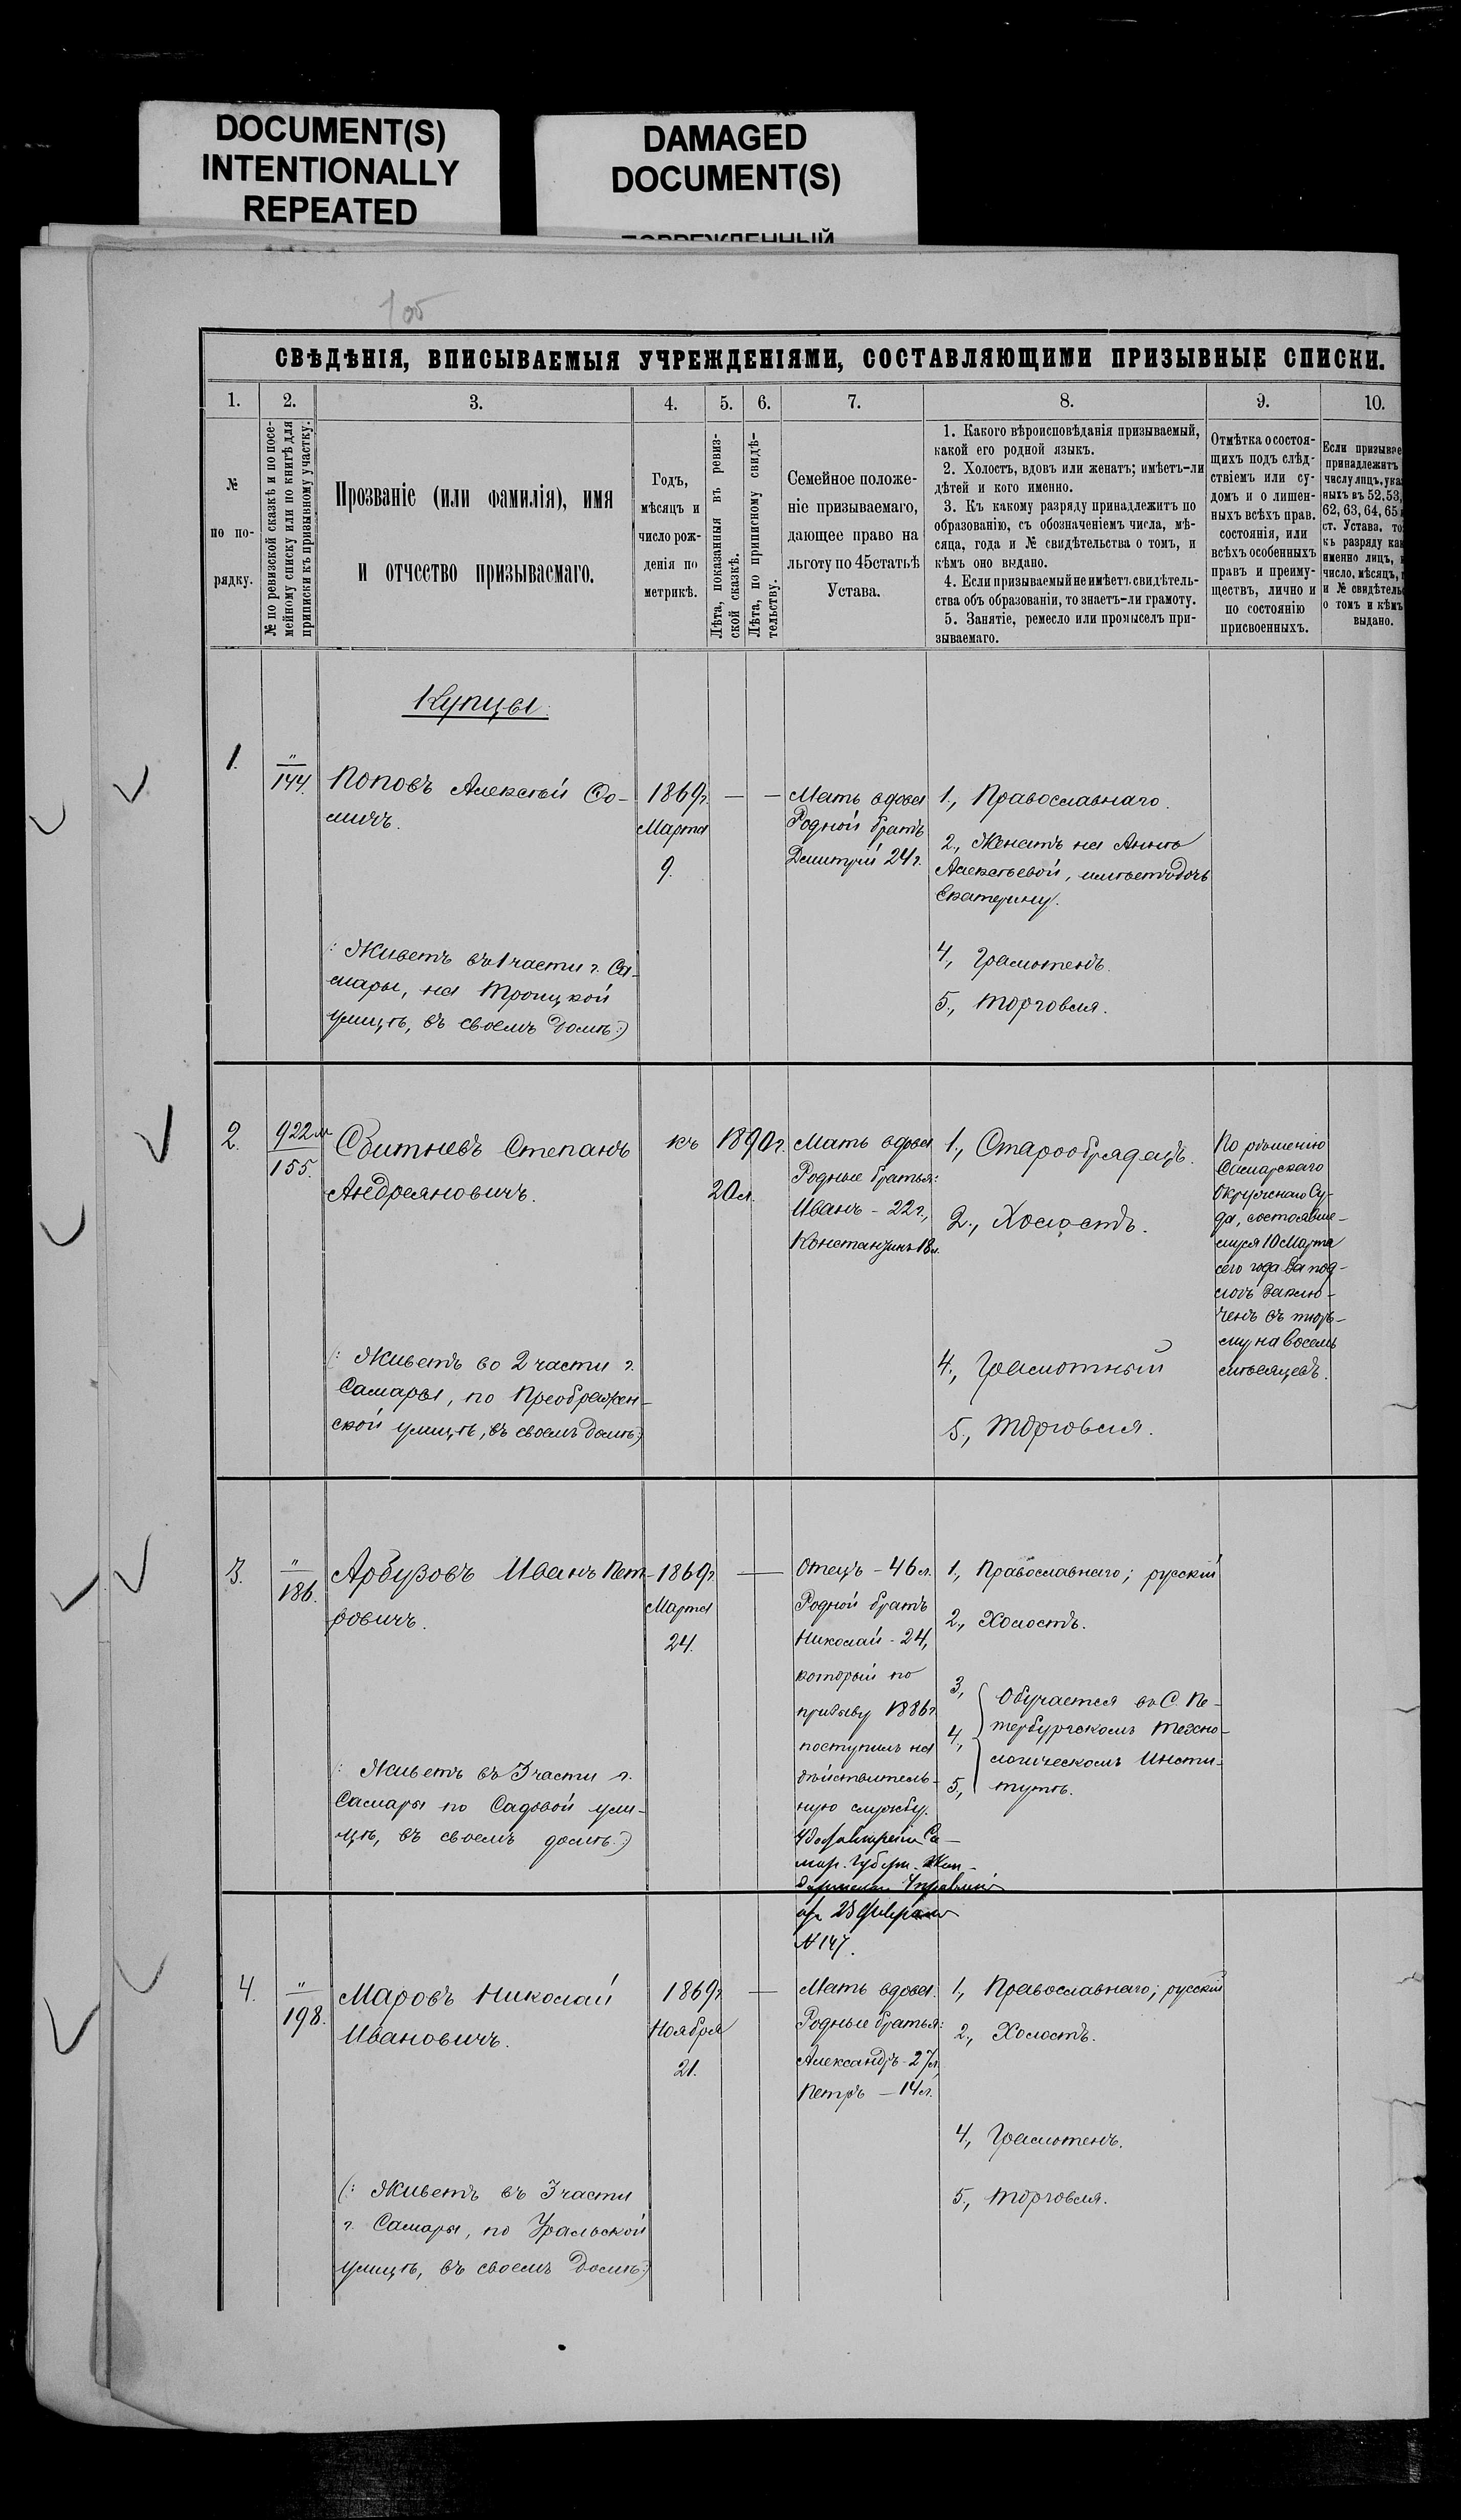 DOCUMENT(S)
INTENTIONALLY
REPEATED
DAMAGED
DOCUMENT(S)
ПОВРЕЖДЕННЫЙ
СВѢДѢНІЯ, ВПИСЫВАЕМЫЯ УЧРЕЖДЕНІЯМИ, СОСТАВЛЯЮЩИМИ ПРИЗЫВНЫЕ СПИСКИ.
1.
2.
3.
4.
5.
6.
7.
8.
9.
10.
№
по по-
рядку.
№ по ревизской сказкѣ и по посе-
мейному списку или по книгѣ для
приписки къ призывному участку.
Прозваніе (или фамилія), имя
и отчество призываемаго.
Годъ,
мѣсяцъ и
число рож-
денія по
метрикѣ.
Лѣта, показанныя въ ревиз-
ской сказкѣ.
Лѣта, по приписному свидѣ-
тельству.
Семейное положе-
ніе призываемаго,
дающее право на
льготу по 45 статьѣ
Устава.
1. Какого вѣроисповѣданія призываемый,
какой его родной языкъ.
2. Холостъ, вдовъ или женатъ; имѣетъ-ли
дѣтей и кого именно.
3. Къ какому разряду принадлежитъ по
образованію, съ обозначеніемъ числа, мѣ-
сяца, года и № свидѣтельства о томъ, и
кѣмъ оно выдано.
4. Если призываемый не имѣетъ свидѣтель-
ства объ образованіи, то знаетъ-ли грамоту.
5. Занятіе, ремесло или промыселъ при-
зываемаго.
Отмѣтка о состоя-
щихъ подъ слѣд-
ствіемъ или су-
домъ и о лишен-
ныхъ всѣхъ прав.
состоянія, или
всѣхъ особенныхъ
правъ и преиму-
ществъ, лично и
по состоянію
присвоенныхъ.
Если призывае
принадлежитъ
числу лицъ, ука
ныхъ въ 52, 53,
62, 63, 64, 65
ст. Устава, то
къ разряду ка
именно лицъ,
число, мѣсяцъ,
и № свидѣтель
о томъ и кѣмъ
выдано.
Купцы.
1.
"
144.
Поповъ Алексѣй Ѳо-
мичъ.
(: Живетъ въ 1 части г. Са-
мары, на Троицкой
улицѣ, въ своемъ домѣ:)
1869г.
Марта
9.
— —
Мать вдова
Родной братъ
Дмитрій 24 г.
1., Православнаго.
2., Женатъ на Аннѣ
Алексѣевой, имѣетъ дочь
Екатерину.
4, Грамотенъ.
5., Торговля.
2.
922 м
155.
Сбитневъ Степанъ
Андреяновичъ.
(: Живетъ во 2 части г.
Самары, по Преображен-
ской улицѣ, въ своемъ домѣ:)
къ 1890г.
20 л.
Мать вдова
Родные братья:
Иванъ - 22 г.,
Константинъ 18 л.
1., Старообрядецъ.
2., Холостъ.
4., Грамотный
5., Торговля.
По рѣшенію
Самарскаго
Окружнаго Су-
да, состоявше-
муся 10 Марта
сего года за под-
логъ заклю-
ченъ въ тюрь-
му на восемь
мѣсяцевъ.
3.
"
186.
Арбузовъ Иванъ Пет-
ровичъ.
(: Живетъ въ 3 части г.
Самары по Садовой ули-
цѣ, въ своемъ домѣ:)
1869г.
Марта
24.
—
Отецъ - 46 л.
Родной братъ
Николай - 24,
который по
призыву 1886г
поступилъ на
дѣйствитель-
ную службу.
Удостовѣреніе Са-
мар. Губерн. Жан-
дармскаго Управленія
отъ 23 Февраля
№ 147.
1., Православнаго; русскій
2., Холостъ.
3,
4,
5,
Обучается въ С. Пе-
тербургскомъ Техно-
логическомъ Инсти-
тутѣ.
4.
"
198.
Маровъ Николай
Ивановичъ.
(: Живетъ въ 3 части
г. Самары, по Уральской
улицѣ, въ своемъ домѣ:)
1869г
Ноября
21.
—
Мать вдова.
Родные братья:
Александръ - 27 л
Петръ — 14 л.
1., Православнаго; русскій
2., Холостъ.
4., Грамотенъ.
5., Торговля.